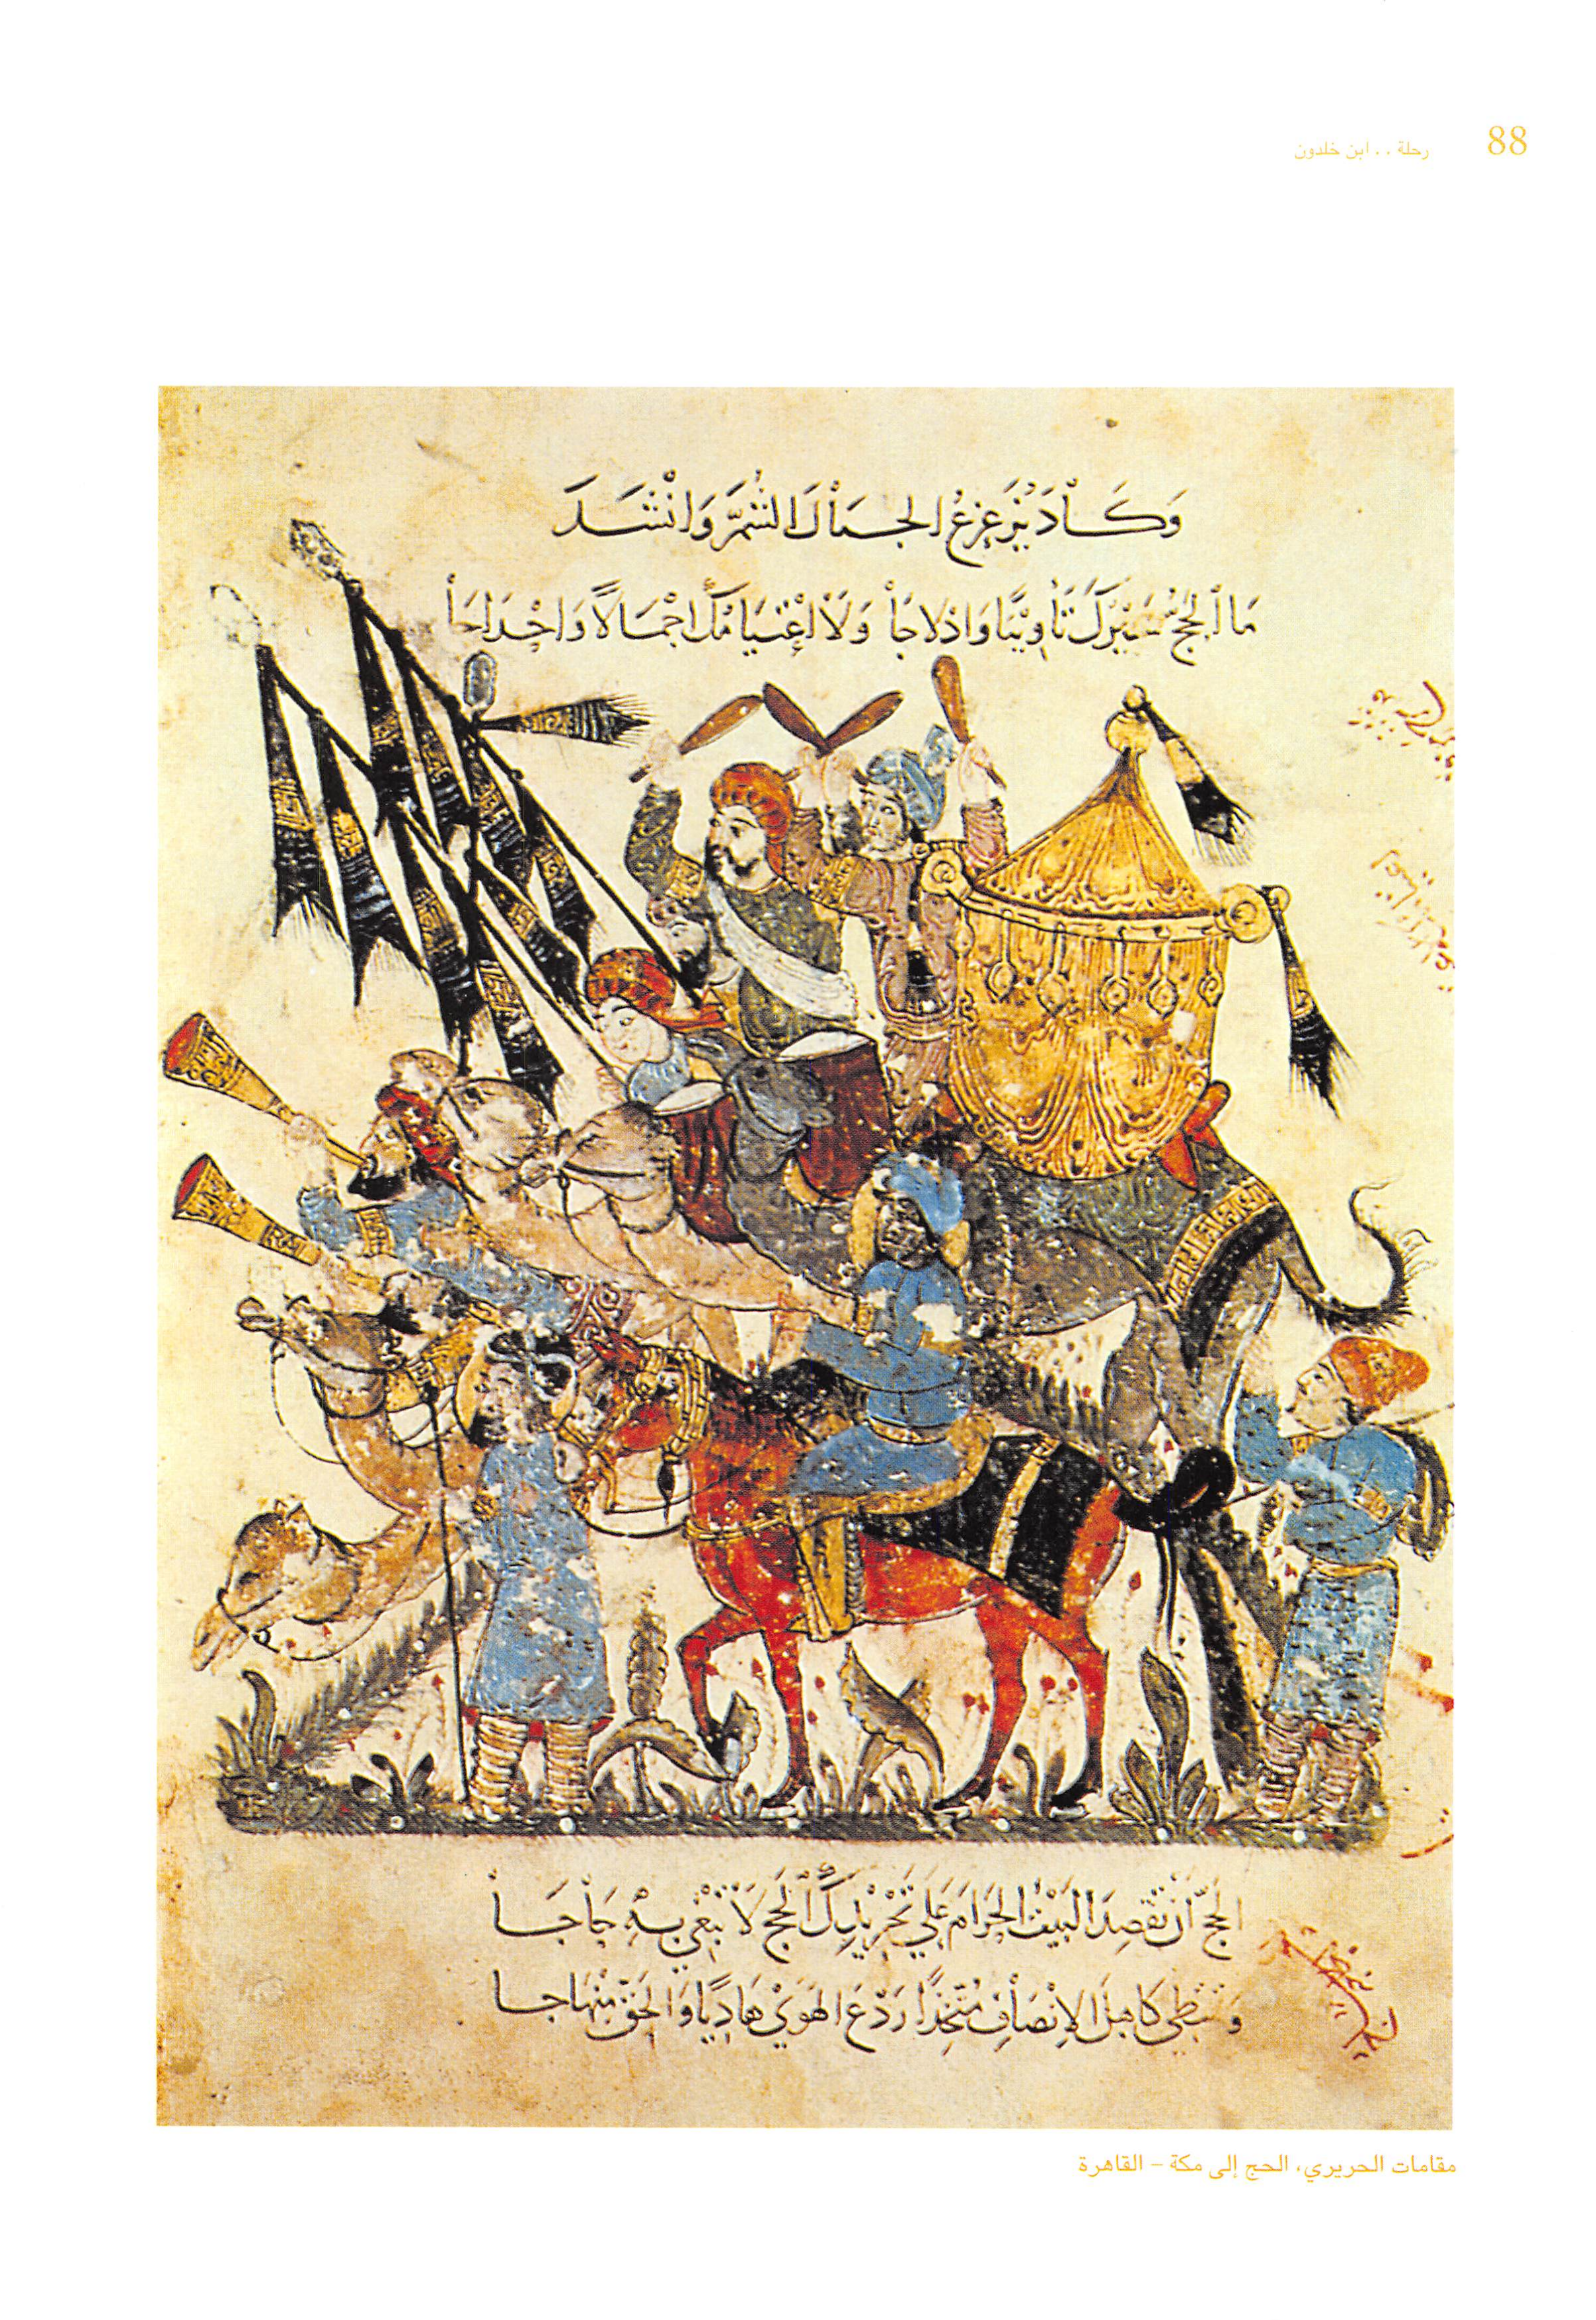 88
رحلة . . ابن خلدون
وَكَادَ يُزَعْزِعُ الجِبَالَ الشُّمَّ وَانْشَدَ
مَا الحَجُّ سَيْرُكَ تَأْوِيْبًا وَادْلَاجَا وَلَا اعْتِيَامُكَ اجْمَالًا وَاحْدَاجَا
الحَجُّ أنْ تَقْصِدَ البَيْتَ الحَرَامَ عَلَى تَجْرِيْدِكَ الحَجَّ لَا تَبْغِي بِهِ حَاجَا
وَتَمْتَطِي كَاهِلَ الاِنْصَافِ مُتَّخِذًا رَدْعَ الهَوَى هَادِيًا وَالحَقَّ مِنْهَاجَا
مقامات الحريري، الحج إلى مكة – القاهرة